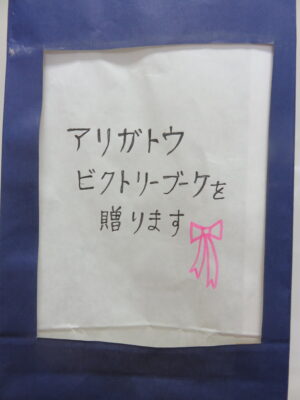 アリガトウ
ビクトリーブーケを
贈ります